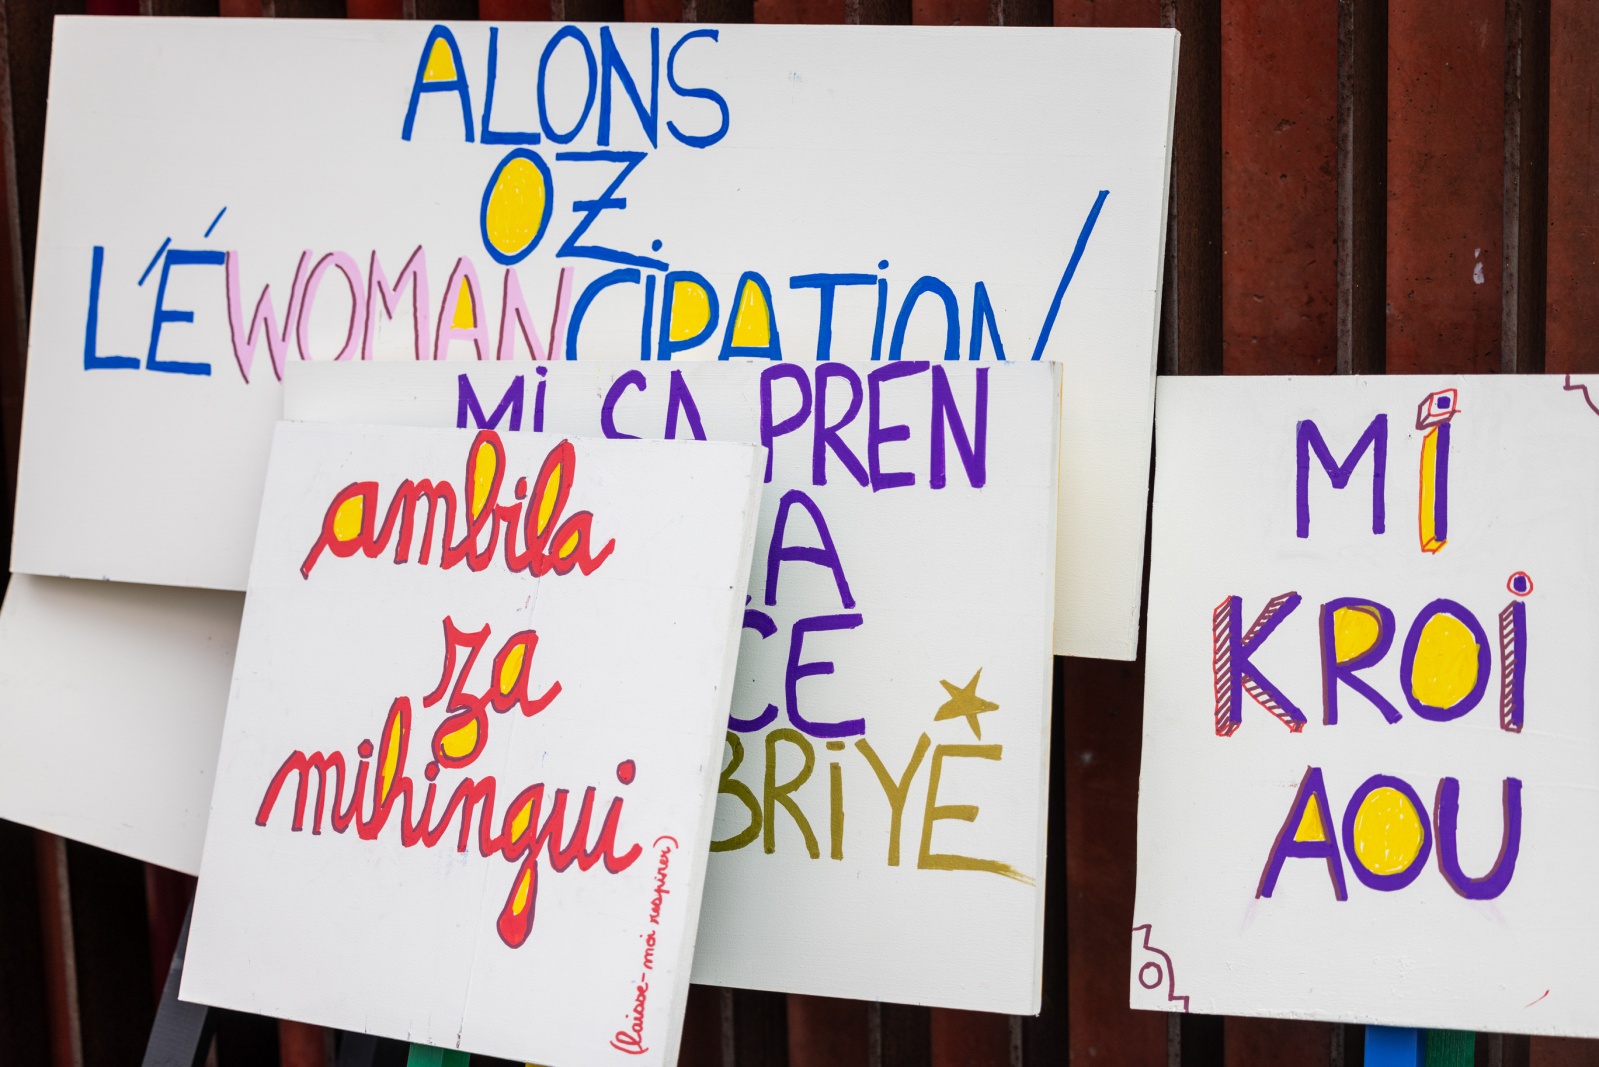 ALONS
OZ.
L'ÉWOMANCIPATION
Mi SA PREN
CE
BRiYÉ
ambila
za
mihingui
(laisse-moi respirer)
Mi
KROi
AOU